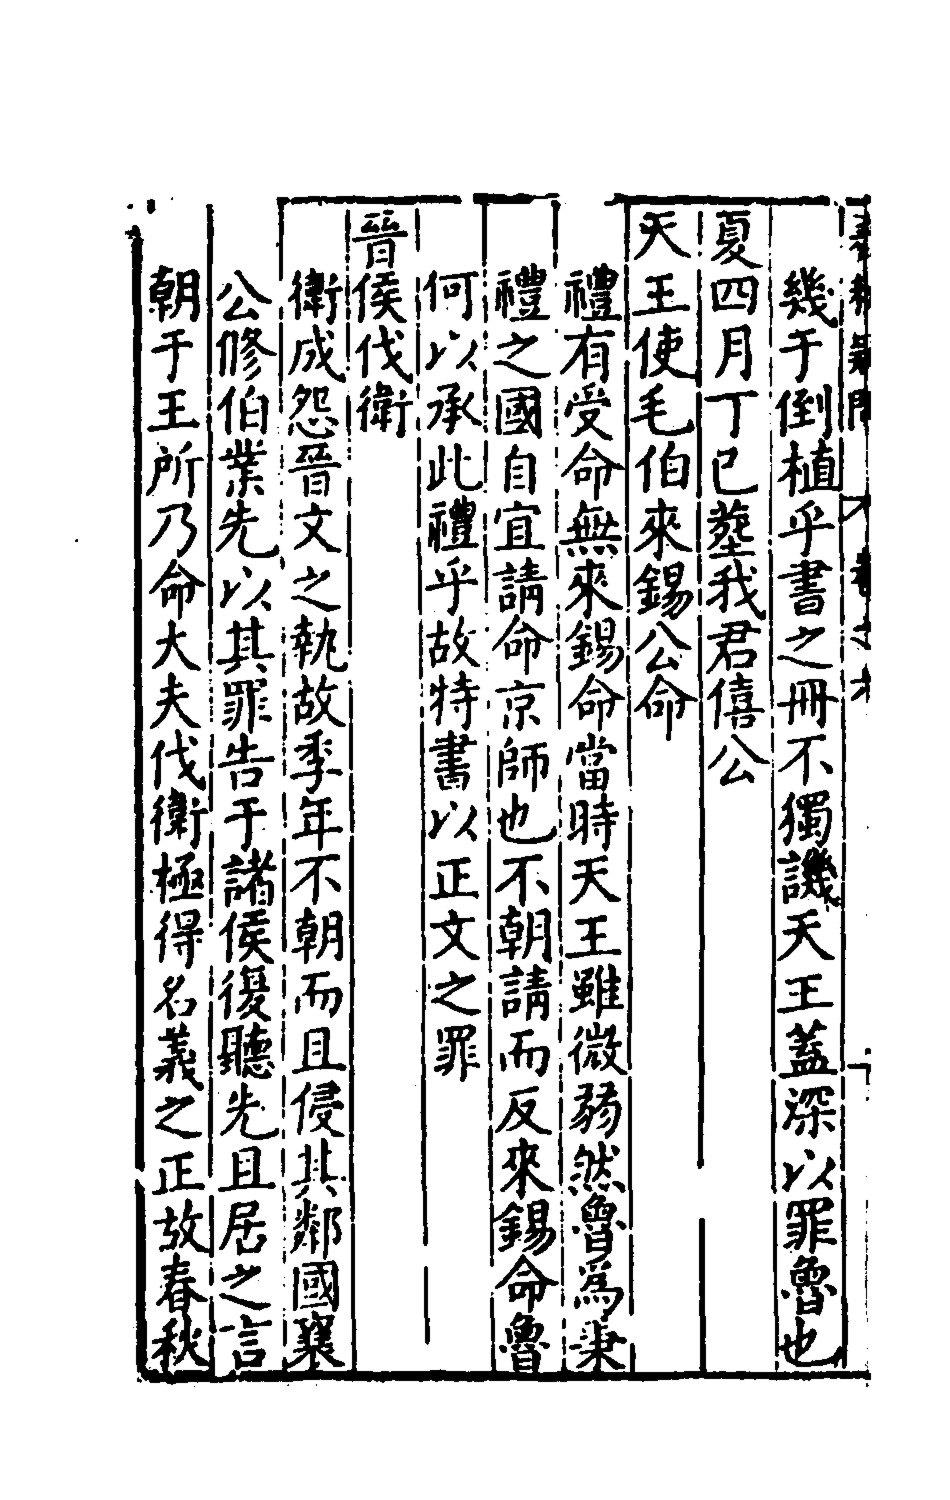 幾于倒植乎書之冊不獨譏天王蓋深以罪魯也
夏四月丁巳葬我君僖公
天王使毛伯來錫公命
禮有受命無來錫命當時天王雖微弱然魯爲秉
禮之國自宜請命京師也不朝請而反來錫命魯
何以承此禮乎故特書以正文之罪
晉侯伐衛
衛成怨晉文之執故季年不朝而且侵其鄰國襄
公修伯業先以其罪告于諸侯復聽先且居之言
朝于王所乃命大夫伐衛極得名義之正故春秋